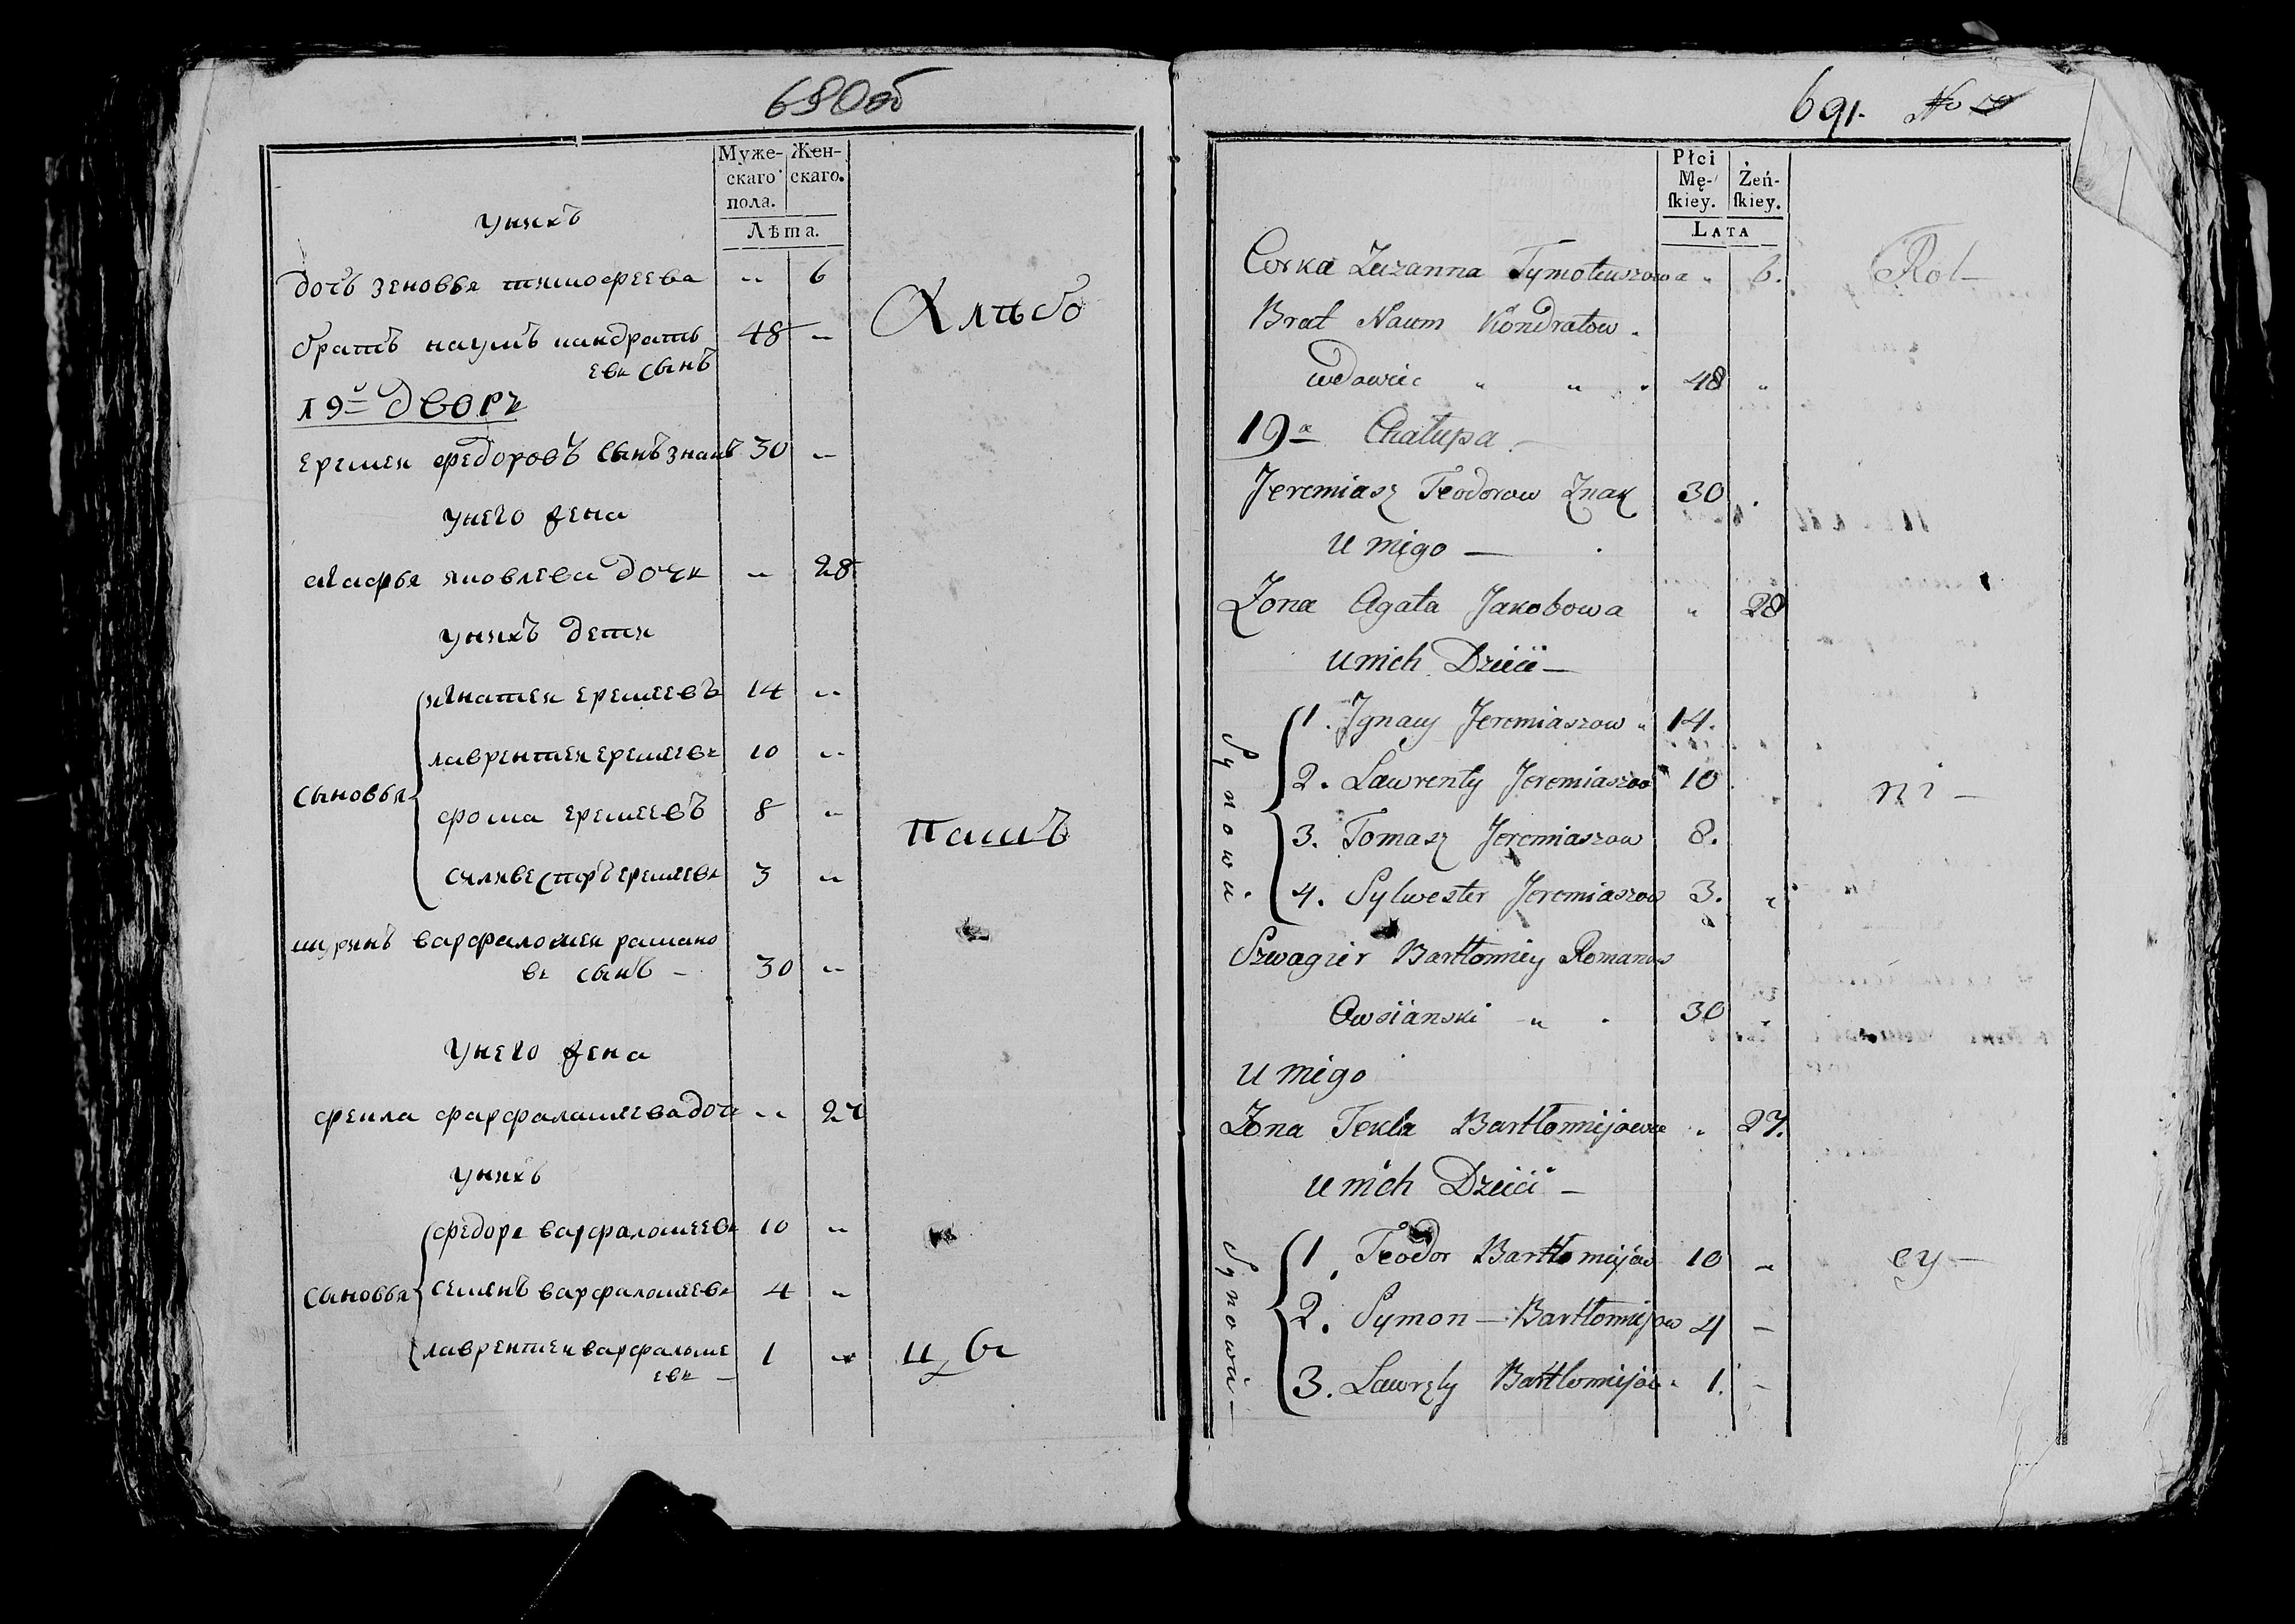 690об
Муже-
скаго
пола.
Жен-
скаго.
Лѣта.
унихъ
дочъ зеновья тимофеева „ 6
братъ наумъ кандрать
евъ сынъ 48 „
Хлѣбо
19й дворъ
еремеи федоровъ сынъ знакъ 30 „
унего жена
агафья яковлева дочь „ 28
унихъ дети
сыновья
игнатеи еремеевъ 14 „
лаврентеи еремеевъ 10 „
фома еремеевъ 8 „
силивестръ еремеевъ 3 „
пашъ
шуринъ варфаломеи рамано
въ сынъ – 30 „
унего жена
фекла фарфаламеева доч „ 27
унихъ
сыновья
федоръ варфаломеевъ 10 „
семенъ варфаломеевъ 4 „
лаврентеи варфаломе
евъ – 1 „
цы
691. No 19
Płci
Mę-
ſkiey.
Żeń-
ſkiey.
LATA
Corka Zuzanna Tymoteuszowa „ 6.
Rol–
Brat Naum Kondratow.
wdowiec „ „ . 48 „
19a Chałupa
Jeremiasz Teodorow Znak 30 .
u niego —
Zona Agata Jakobowa „ 28
u nich Dzieci —
Synowie
1. Jgnacy Jeremiaszow „ 14.
2. Lawrenty Jeremiaszow 10
ni –
3. Tomasz Jeremiaszow 8.
4. Sylwester Jeremiaszow 3. „
Szwagier Bartłomiey Romanow
Owsianski „ . 30 „
u niego
Zona Tekla Bartłomiejowa „ 27.
u nich Dzieci –
Synowie –
1. Teodor Bartłomiejow 10 „
cy –
2. Symon – Bartłomiejow 4 –
3. Lawręty Bartłomiejow „ 1. –